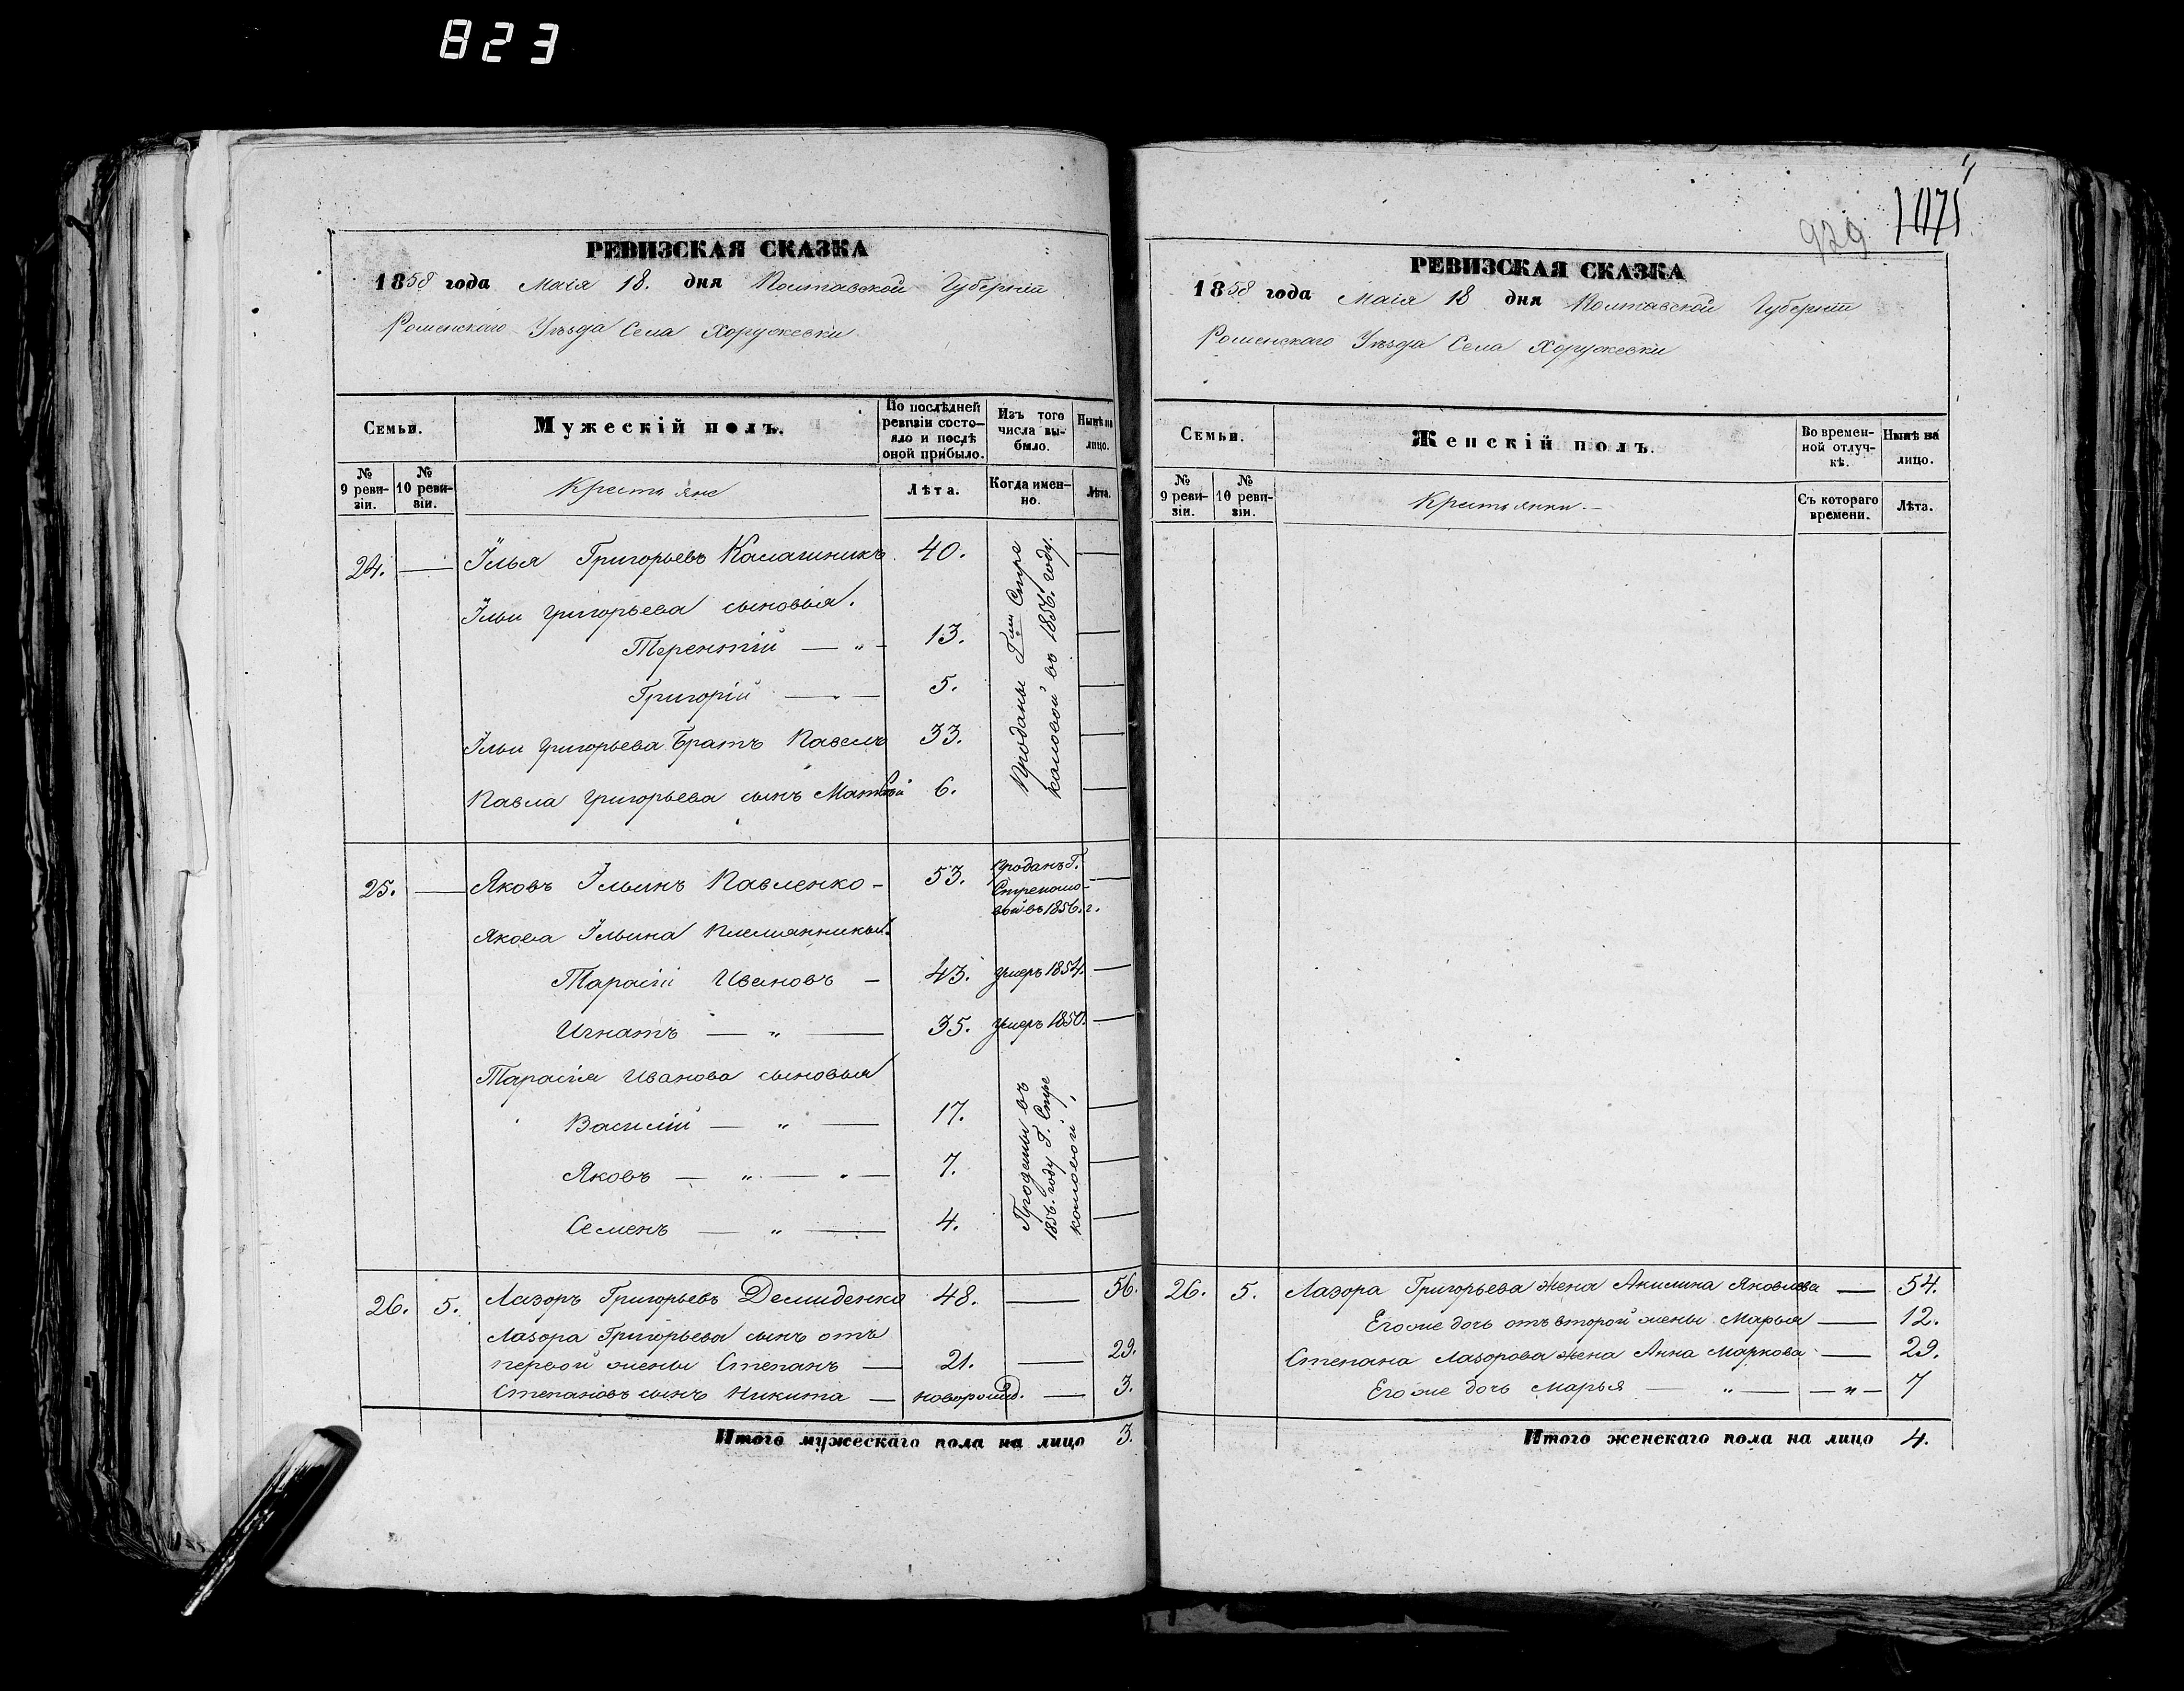 823
РЕВИЗСКАЯ СКАЗКА
1858 года Маія 18. дня Полтавской Губерніи
Роменскаго Уѣзда Села Хоружевки
Семьи.
Мужескій полъ.
По послѣдней ревизіи состо-яло и послѣ оной прибыло.
Изъ того числа вы-было.
Нынѣ на лицо.
№ 9 реви-зіи.
№ 10 реви-зіи.
Крестьяне
Лѣта.
Когда имен-но.
Лѣта.
24. — Илья Григорьевъ Калашникъ 40. —
Ильи Григорьева сыновья.
Терентій — „ — 13. —
Григорій — — 5. —
Ильи Григорьева Братъ Павелъ 33. —
Павла Григорьева сынъ Матвѣй 6. —
Проданы Г-жи Стре
каловой въ 1856. году.
25. — Яковъ Ильинъ Павленко — 53. Проданъ Г. —
Стрекало-
вой въ 1856. г.
Якова Ильина племянники.
Тарасій Ивановъ — 43. умеръ 1854. —
Игнатъ — „ — 35. умеръ 1850. —
Тарасія Иванова сыновья
Василій — „ — 17. —
Яковъ — „ — „ — 7. —
Семенъ — „ — 4. —
Проданы въ
1856. году Г. Стре
каловой
26. 5. Лазоръ Григорьевъ Демиденко 48. — 56.
Лазора Григорьева сынъ отъ
первой жены Степанъ — 21. — 29.
Степановъ сынъ Никита — новорожд. — 3.
Итого мужескаго пола на лицо 3.
929
1171
РЕВИЗСКАЯ СКАЗКА
1858 года Маія 18 дня Полтавской Губерніи
Роменскаго Уѣзда Села Хоружевки
Семьи.
Женскій полъ.
Во времен-ной отлуч-кѣ.
Нынѣ на лицо.
№ 9 реви-зіи.
№ 10 реви-зіи.
Крестьянки. —
Съ котораго времени.
Лѣта.
26. 5. Лазора Григорьева жена Акилина Яковлева — 54.
Его же дочь отъ второй жены Марья — 12.
Степана Лазорова жена Анна Маркова — 29.
Его же дочь Марья — „ — — „ — 7
Итого женскаго пола на лицо 4.